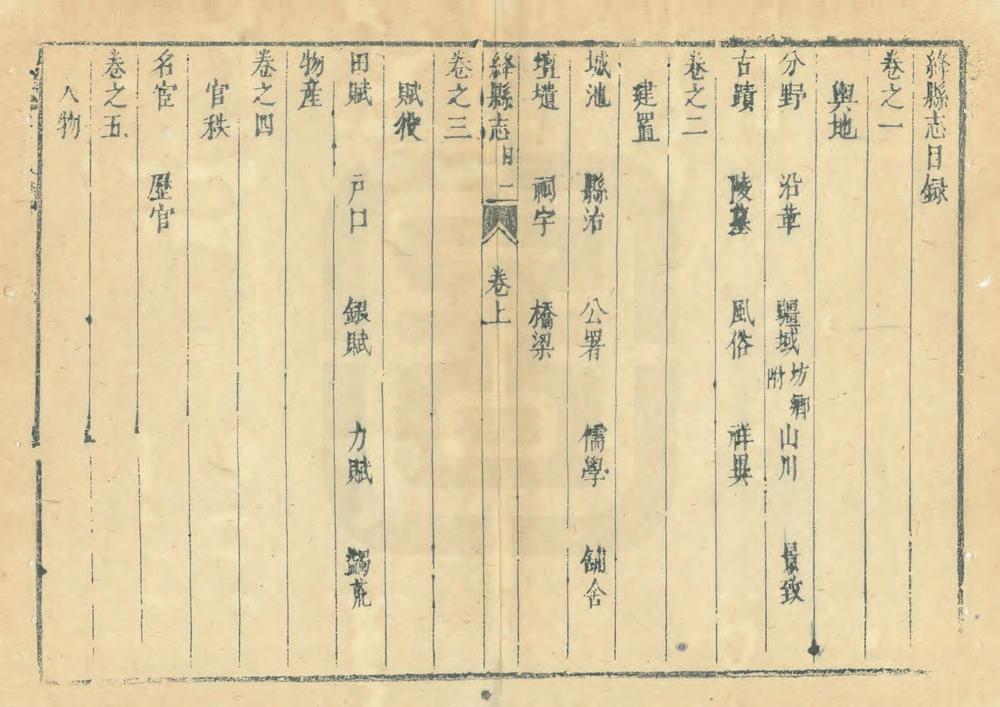 絳縣志目録
卷之一
輿地
分野 沿革 疆域 坊鄉附 山川 景致
古蹟 陵墓 風俗 祥異
卷之二
建置
城池 縣治 公署 儒學 舖舍
壇壝 祠宇 橋梁
絳縣志 目 二 卷上
卷之三
賦役
田賦 戶口 銀賦 力賦 蠲荒
物産
卷之四
官秩
名宦 歷官
卷之五
人物